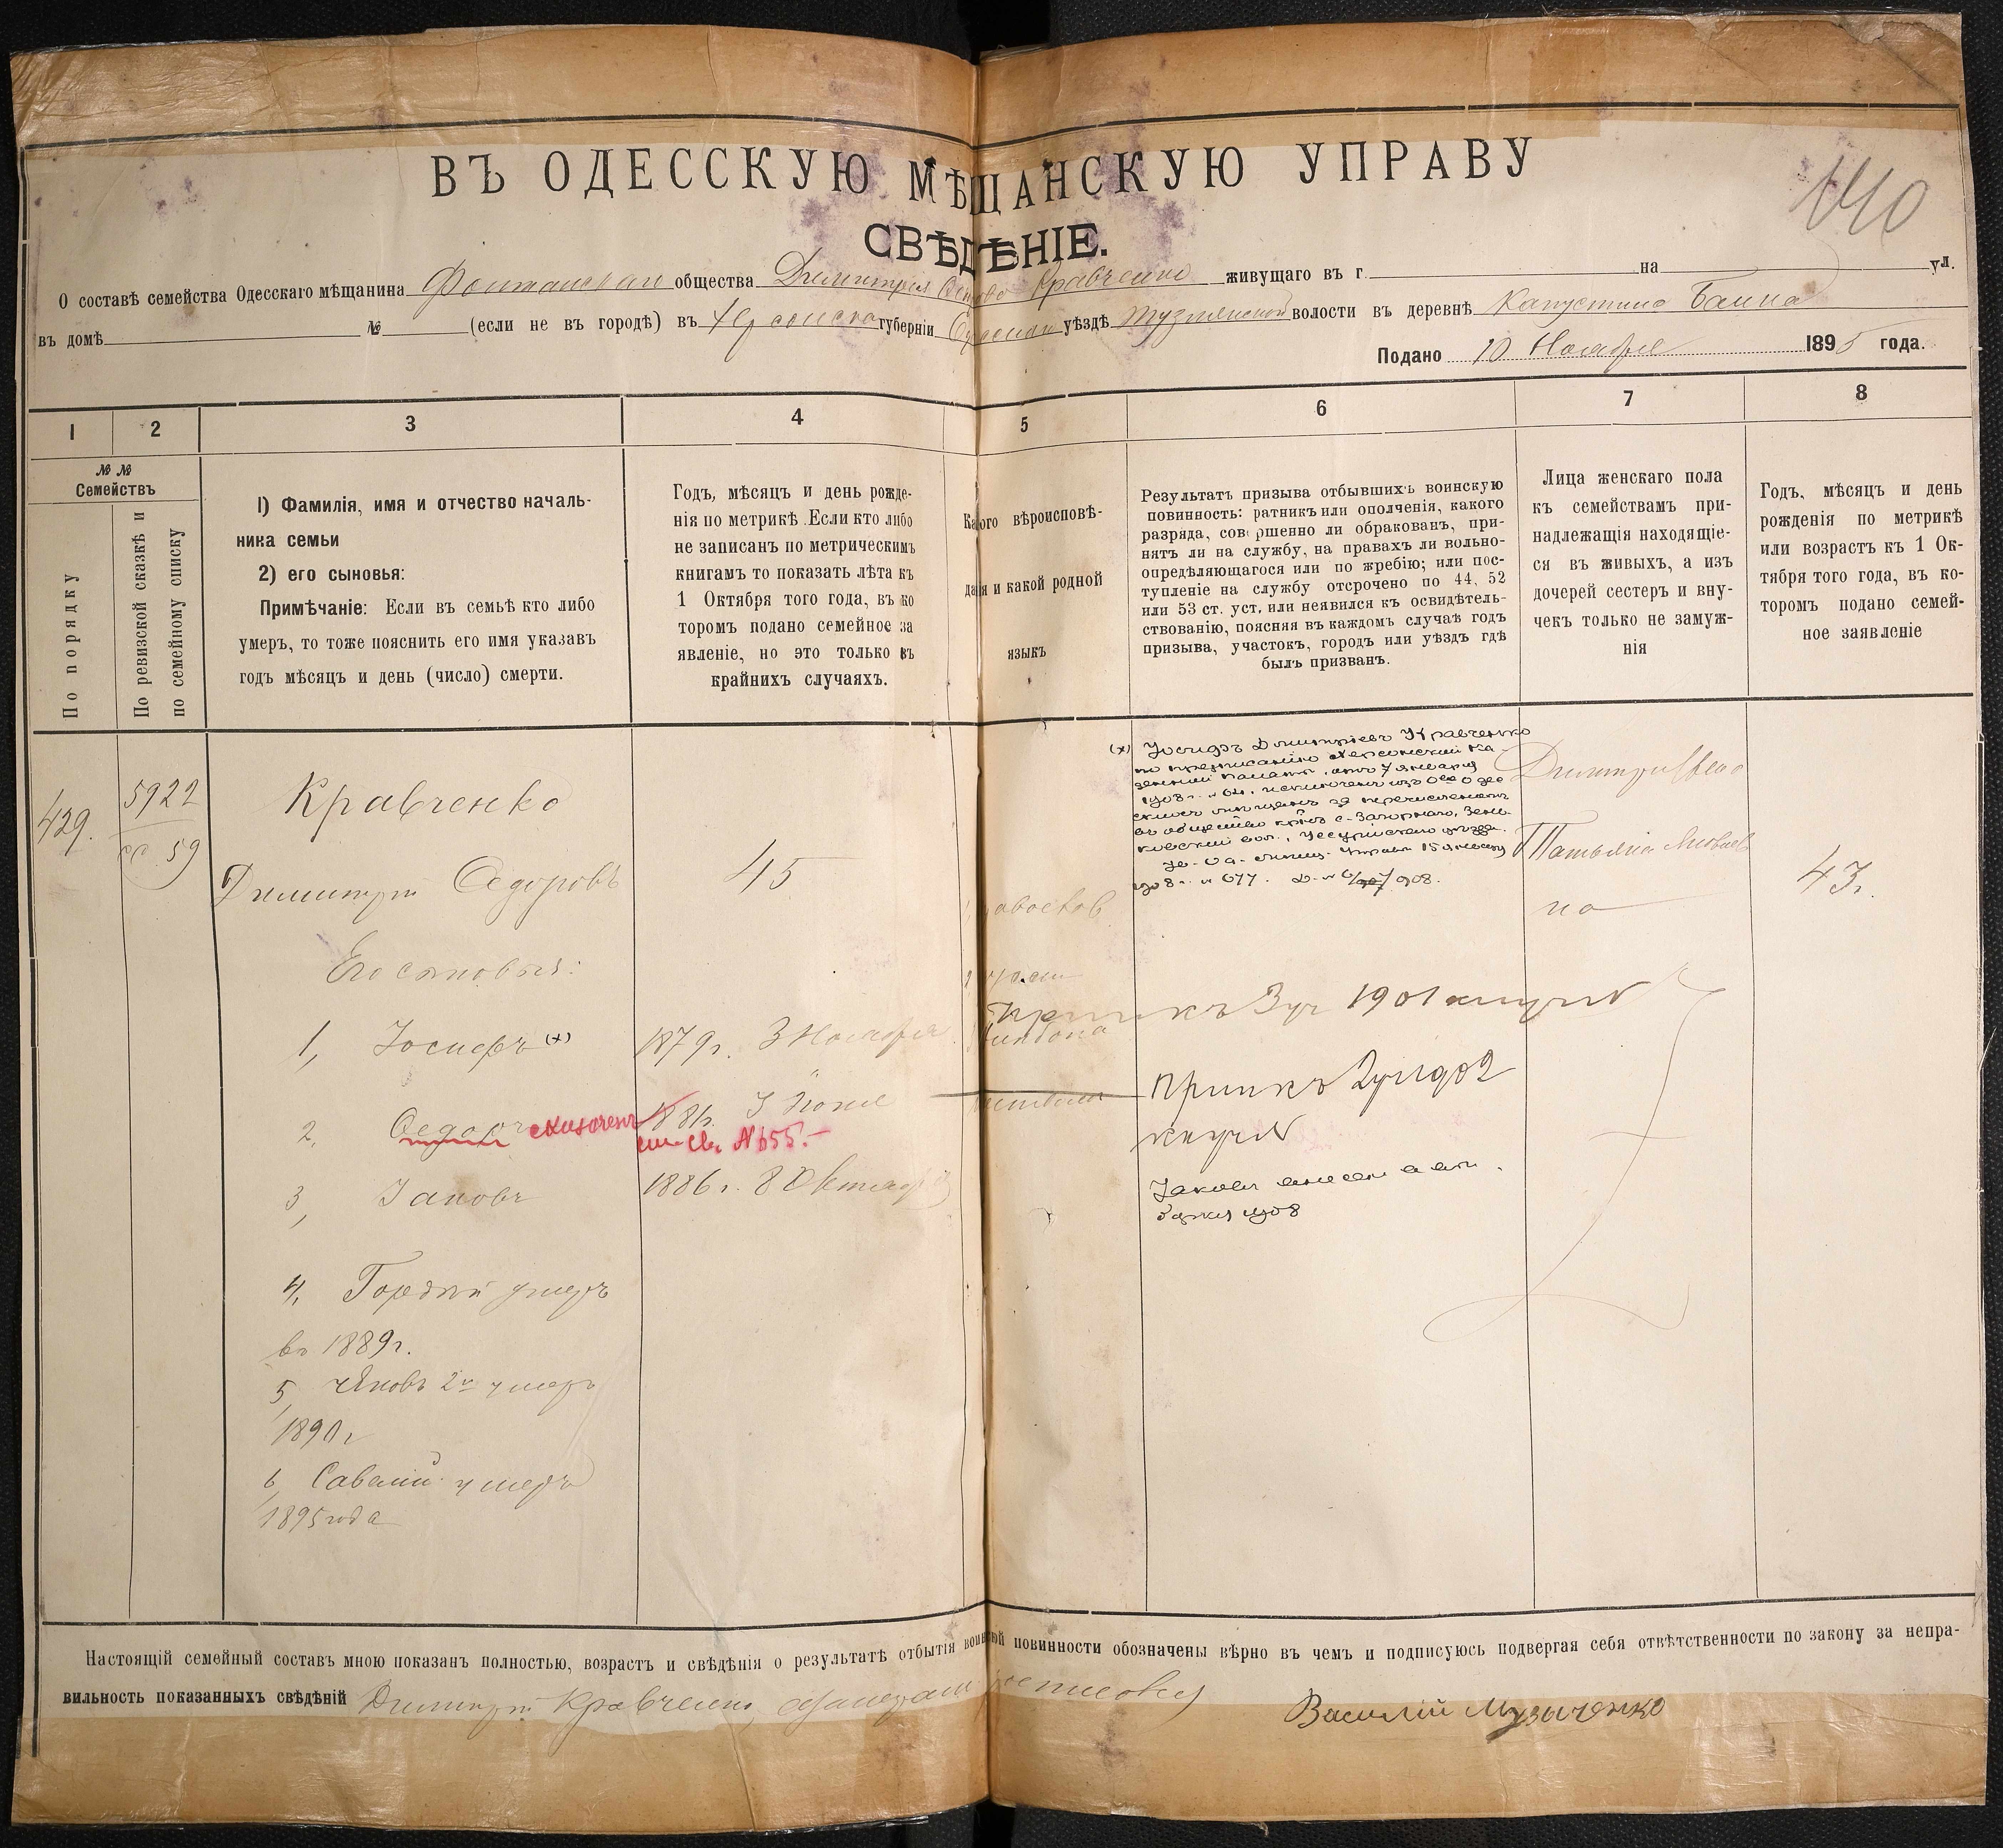 ВЪ ОДЕССКУЮ МѢЩАНСКУЮ УПРАВУ
140
СВѢДѢНІЕ.
О составѣ семейства Одесскаго мѣщанина Фонтанскаго общества Димитрія Кравченко живущаго въ г. на ул.
въ домѣ № (если не въ городѣ) въ Херсонской губерніи уѣздѣ волости въ деревнѣ Капустина Балка
Подано 10 Ноября 1895 года.
1 2 3 4 5 6 7 8
№№ Семействъ
По порядку
По ревизской сказкѣ и
по семейному списку
1) Фамилія, имя и отчество началь-
ника семьи
2) его сыновья:
Примѣчаніе: Если въ семьѣ кто либо
умеръ, то тоже пояснить его имя указавъ
годъ мѣсяцъ и день (число) смерти.
Годъ, мѣсяцъ и день рожде-
нія по метрикѣ. Если кто либо
не записанъ по метрическимъ
книгамъ то показать лѣта къ
1 Октября того года, въ ко
торомъ подано семейное за
явленіе, но это только въ
крайнихъ случаяхъ.
Какого вѣроисповѣ-
данія и какой родной
языкъ
Результатъ призыва отбывшихъ воинскую
повинность: ратникъ или ополченія, какого
разряда, совершенно ли обракованъ, при-
нятъ ли на службу, на правахъ ли вольно-
опредѣляющагося или по жребію; или пос-
тупленіе на службу отсрочено по 44, 52
или 53 ст. уст. или неявился къ освидѣтель-
ствованію, поясняя въ каждомъ случаѣ годъ
призыва, участокъ, городъ или уѣздъ гдѣ
былъ призванъ.
Лица женскаго пола
къ семействамъ при-
надлежащія находящіе-
ся въ живыхъ, а изъ
дочерей сестеръ и вну-
чекъ только не замуж-
нія
Годъ, мѣсяцъ и день
рожденія по метрикѣ
или возрастъ къ 1 Ок-
тября того года, въ ко-
торомъ подано семей-
ное заявленіе
429.
5922
59
Кравченко
Димитрій Федоровъ
45
Его сыновья:
1, Іосифъ (х)
1879г. 3 Ноября
2, Федоръ исключенъ
1881г. 3 Іюня
см. св. №655.-
3, Іаковъ
1886г. 8 Октября
4, Гордѣй умеръ
въ 1889г.
5, Яковъ 2й умеръ
1890г
6, Савелій умеръ
1895 года
(х) Іосифъ Димитріевъ Кравченко
по предписанію Херсонской Ка-
зенной Палаты, отъ 7 января
1908г. исключенъ изъ
мѣщанъ за перечисленіемъ
въ общество кр-нъ с. Загорнаго, Зень-
ковской вол., Уссурійскаго уѣзда.
Управы 15 января
1908г. № 677.
Прип къ 1901
Прип къ 1902
Іаковъ внесенъ
1908
Димитрія жена
Татьяна Яковлев
на
43г.
Настоящій семейный составъ мною показанъ полностью, возрастъ и свѣдѣнія о результатѣ отбытія воинской повинности обозначены вѣрно въ чемъ и подписуюсь подвергая себя отвѣтственности по закону за непра-
вильность показанныхъ свѣдѣній Димитрій Кравченко, Василій Музыченко